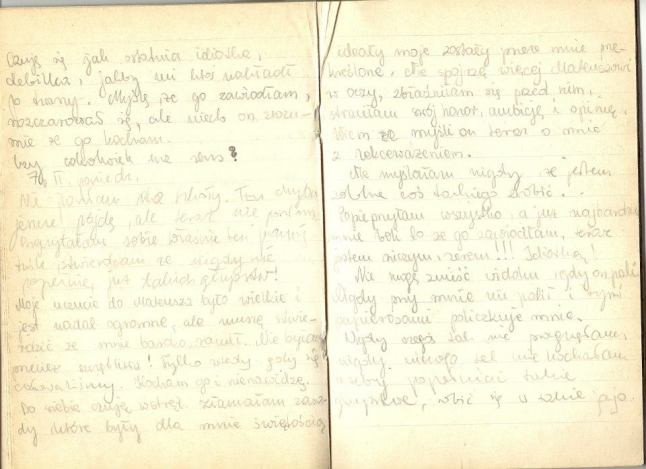 Czuję się jak ostatnia idiotka,
debilka, jakby mi ktoś nakładł
po twarzy. Myślę, że go zawiodłam,
rozczarował się, ale niech on zrozu-
mie że go kocham.
Czy cokolwiek ma sens?
II. poniedz.
Nie
jeszcze pójdę, ale teraz nie
sobie właśnie ten
stwierdzam że nigdy nie
popełnię już takich głupstw!
Moje uczucie do Mateusza było wielkie i
jest nadal ogromne, ale muszę
że mnie bardzo zranił. Nie
! Tylko wtedy gdy się
Kocham go i nienawidzę.
Do siebie czuję wstręt. Złamałam zasa-
dy które były dla mnie świętością
ideały moje zostały przeze mnie prze-
kreślone. Nie spojrzę więcej Mateuszowi
w oczy, zbłaźniłam się przed nim,
straciłam swój honor, ambicję i opinię.
Wiem że myśli on teraz o mnie
z lekceważeniem.
Nie myślałam nigdy, że jestem
zdolna coś takiego zrobić.
Popieprzyłam wszystko, a już najbardziej
mnie boli to że go zawiodłam, teraz
jestem niczym, zerem!!! Idiotką!
Nie mogę znieść widoku gdy on pali
Nigdy przy mnie nie palił i
papierosami policzkuje mnie.
Nigdy czegoś tak nie pragnęłam,
nigdy nikogo tak nie kochałam
żeby popełniać takie
się w takie